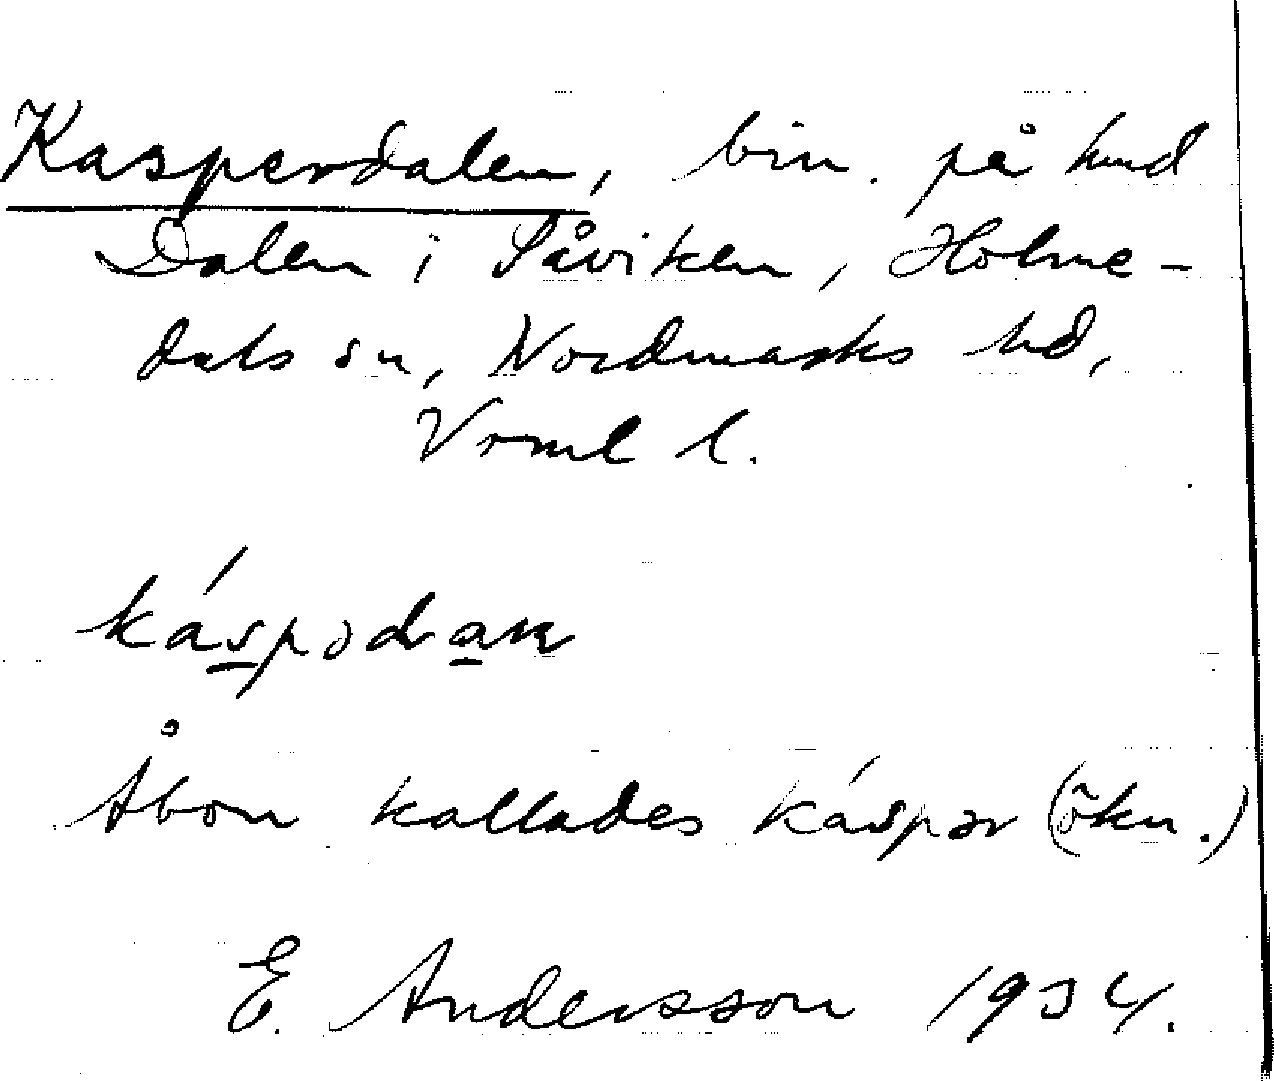 Kasperdalen, bin. på hmd
Dalen i Såviken, Holme-
dals sn, Nordmarks hd,
Vrml l.
káspədan
Åbon kallades káspər (ökn.)
E. Andersson 1934.